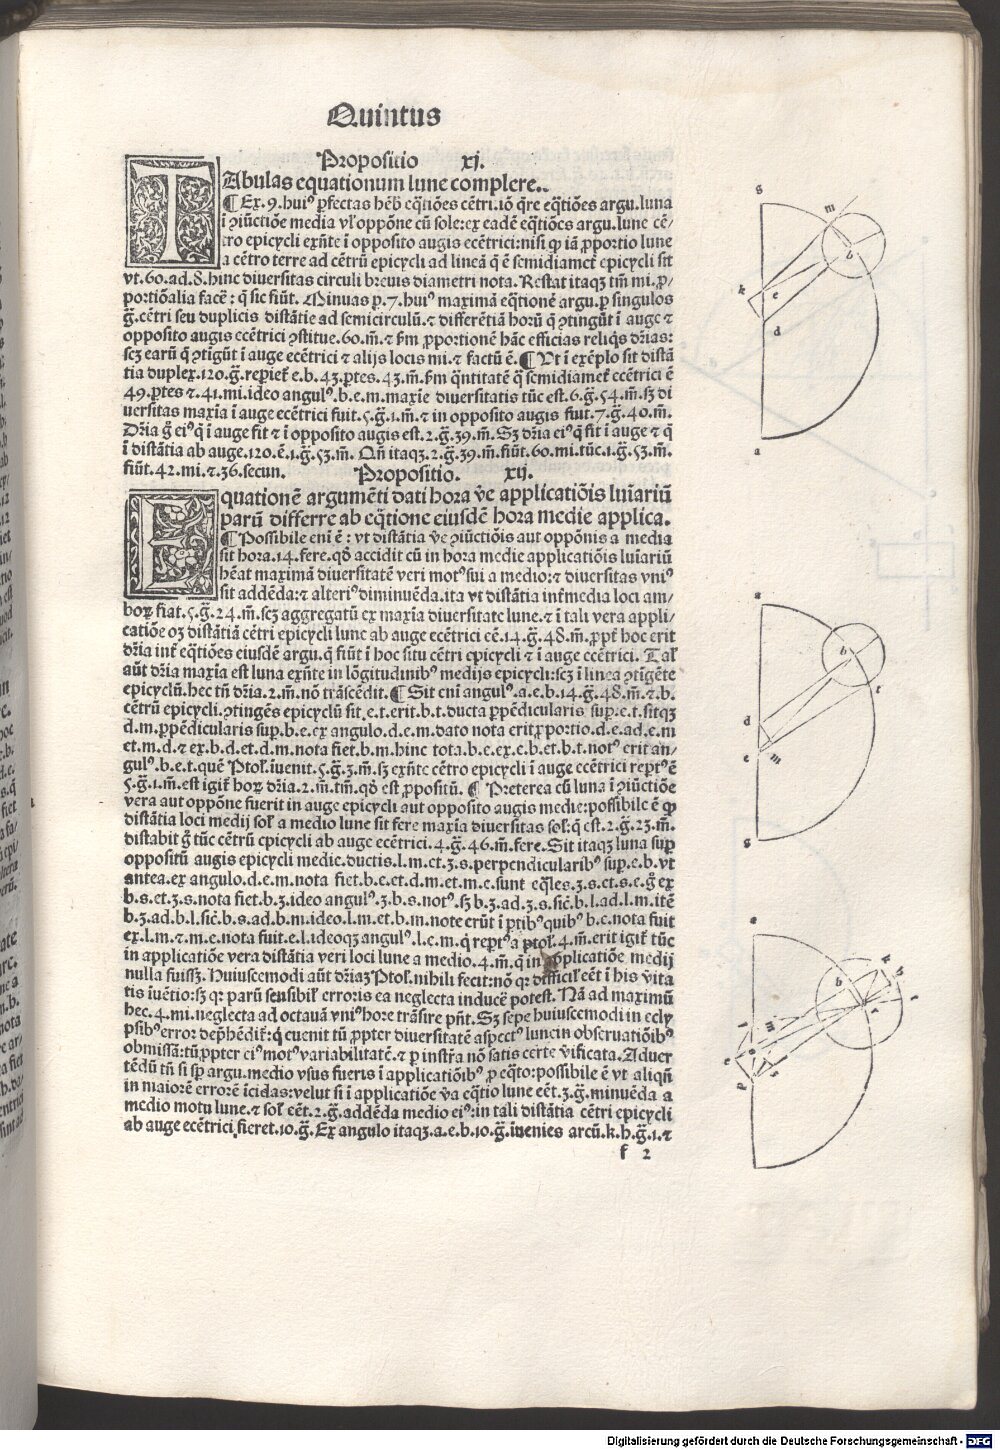 Quintus
Propositio xj.
TAbulas equationum lune complere..
¶ Ex.9.huiꝰ ꝑfectas hēb eq̄tiōes cētri.iō q̄re eq̄tiões argu.luna
ī ꝯiūctiōe media vl' oppōne cū sole:ex eadē eq̄tiōes argu.lune cē/
tro epicycli exn̄te ī opposito augis ecētrici:nisi ꝙ iā ꝓportio lune
a cētro terre ad cētrū epicycli ad lineā q̄ ē semidiamet̄ epicycli sit
vt.60.ad.8.hinc diuersitas circuli breuis diametri nota.Restat itaqꝫ tm̄ mi.ꝓ/
portiōalia facē: q̄ sic fiūt. Minuas ꝑ.7.huiꝰ maximā eq̄tionē argu.ꝑ singulos
g̃.cētri seu duplicis distātie ad semicirculū.⁊ differētiā horū q̄ ꝯtingūt ī auge ⁊
opposito augis eccētrici ꝯstitue.60.m̄.⁊ ẜm ꝓportionē hāc efficias reliq̄s dr̄ias:
scꝫ earū q̄ ꝯtigūt ī auge ecētrici ⁊ alijs locis mi.⁊ factū ē. ¶ Vt ī exēplo sit distā
tia duplex.120.g̃.reperiet̄ e.b.43.ꝑtes.43.m̄.ẜm q̄ntitatē q̄ semidiamet̄ eccētrici ē
49.ꝑtes ⁊.41.mi.ideo angulꝰ.b.e.m.maxie diuersitatis tūc est.6.g̃.54.m̄.sꝫ di
uersitas maxīa ī auge ecētrici fuit.5.g̃.1.m̄.⁊ in opposito augis fiut.7.g̃.40.m̄.
Dr̄ia g̃ eiꝰ q̄ ī auge fit ⁊ ī opposito augis est.2.g̃.39.m̄.Sꝫ dr̄ia eiꝰ q̄ fit ī auge ⁊ q̄
ī distātia ab auge.120.ē.1.g̃.53.m̄. Qn̄ itaqꝫ.2.g̃.39.m̄.fiūt.60.mi.tūc.1.g̃.53.m̄.
fiūt.42.mi.⁊.36.secun. Propositio. xij.
EQuationē argumēti dati hora ṽe applicatiōis luīariū
parū differre ab eq̄tione eiusdē hora medie applica.
¶ Possibile eni ē : vt distātia ṽe ꝯiūctiōis aut oppōnis a media
sit hora.14.fere.qd̄ accidit cū in hora medie applicatiōis luīariū
hēat maximā diuersitatē veri motꝰ sui a medio:⁊ diuersitas vniꝰ
sit addēda:⁊ alteriꝰ diminuēda.ita vt distātia intmedia loci am/
boꝝ fiat.5.g̃.24.m̄.scꝫ aggregatū ex maxīa diuersitate lune.⁊ ī tali vera appli/
catiōe oꝫ distātiā cētri epicycli lune ab auge eccētrici eē.14.g̃.48.m̄.ꝓpt̄ hoc erit
dr̄ia int̄ eq̄tiōes eiusdē argu.q̄ fiūt ī hoc situ cētri epicycli ⁊ ī auge eccētrici. Tal'
aūt dr̄ia maxīa est luna exn̄te in lōgitudinibꝰ medijs epicycli:scꝫ ī linea ꝯtīgēte
epicyclū.hec tn̄ dr̄ia.2.m̄.nō trāscēdit. ¶ Sit eni angulꝰ.a.e.b.14.g̃.48.m̄.⁊.b.
cētrū epicycli.ꝯtingēs epicyclū sit.e.t.erit.b.t.ducta ꝑpēdicularis suꝑ.e.t.sitqꝫ
d.m.ꝑpēdicularis suꝑ.b.e.ex angulo.d.e.m.dato nota eritꝓportio.d.e.ad.e.m
et.m.d.⁊ ex.b.d.et.d.m.nota fiet.b.m.hinc tota.b.e.ex.e.b.et.b.t.notꝰ erit an/
gulꝰ.b.e.t.quē Ptol.īuenit.5.g̃.3.m̄.sꝫ exn̄te cētro epicycli ī auge eccētrici reptꝰ ē
5.g̃.1.m̄.est igit̄ hoꝝ dr̄ia.2.m̄.tm̄.qd̄ est ꝓpositū. ¶ Preterea cū luna ī ꝯiūctiōe
vera aut oppōne fuerit in auge epicycli aut opposito augis medie:possibile ē ꝙ
distātia loci medij sol' a medio lune sit fere maxīa diuersitas sol':q̄ est.2.g̃.23.m̄.
distabit g̃ tūc cētrū epicycli ab auge ecētrici.4.g̃.46.m̄.fere.Sit itaqꝫ luna suꝑ
oppositū augis epicycli medie.ductis.l.m.et.ꝫ.s.perpendicularibꝰ suꝑ.e.b.vt
antea.ex angulo.d.e.m.nota fiet.b.e.et.d.m.et.m.e.sunt eq̄les.ꝫ.s.et.s.e.g̃ ex
b.s.et.ꝫ.s.nota fiet.b.ꝫ.ideo angulꝰ.ꝫ.b.s.notꝰ.sꝫ b.ꝫ.ad.ꝫ.s.sic̄.b.l.ad.l.m.itē
b.ꝫ.ad.b.l.sic̄.b.s.ad.b.m.ideo.l.m.et.b.m.note erūt ī ꝑtibꝰ quibꝰ b.e.nota fuit
ex.l.m.⁊ m.e.nota fuit.e.l.ideoqꝫ angulꝰ.l.e.m.q̄ reptꝰ a ptol'.4.m̄.erit igit̄ tūc
in applicatiōe vera distātia veri loci lune a medio.4.m̄.q̄ in applicatiōe medij
nulla fuissꝫ. Huiuscemodi aūt dr̄iaꝫ Ptol'.nihili fecit:nō qꝛ difficil' eēt ī his vita
tis īuētio:sꝫ qꝛ parū sensibil' erroris ea neglecta inducē potest. Nā ad maximū
hec.4.mi.neglecta ad octauā vniꝰ hore trāsire pn̄t. Sꝫ sepe huiuscemodi in ecly
psibꝰ error dep̄hēdit̄:q̄ euenit tū ꝓpter diuersitatē aspectꝰ lune in obseruatiōibꝰ
obmissā:tū ꝓpter eiꝰ motꝰ variabilitatē.⁊ ꝑ instr̄a nō satis certe v̄ificata.Aduer
tēdū tn̄ si sꝑ argu.medio vsus fueris ī applicatiōibꝰ ꝓ eq̄to:possibile ē vt aliqn̄
in maiorē errorē īcidas:velut si ī applicatiōe v̄a eq̄tio lune eēt.3.g̃.minuēda a
medio motu lune.⁊ sol' eēt.2.g̃.addēda medio eiꝰ:in tali distātia cētri epicycli
ab auge ecētrici fieret.10.g̃.Ex angulo itaqꝫ.a.e.b.10.g̃.īuenies arcū.k.h.g̃.1.⁊
f 2
g
m
b
k
e
d
a
a
b
t
d
e
m
g
a
k
h
b
t
r
l
m
e
p
s
Digitalisierung gefördert durch die Deutsche Forschungsgemeinschaft - DFG